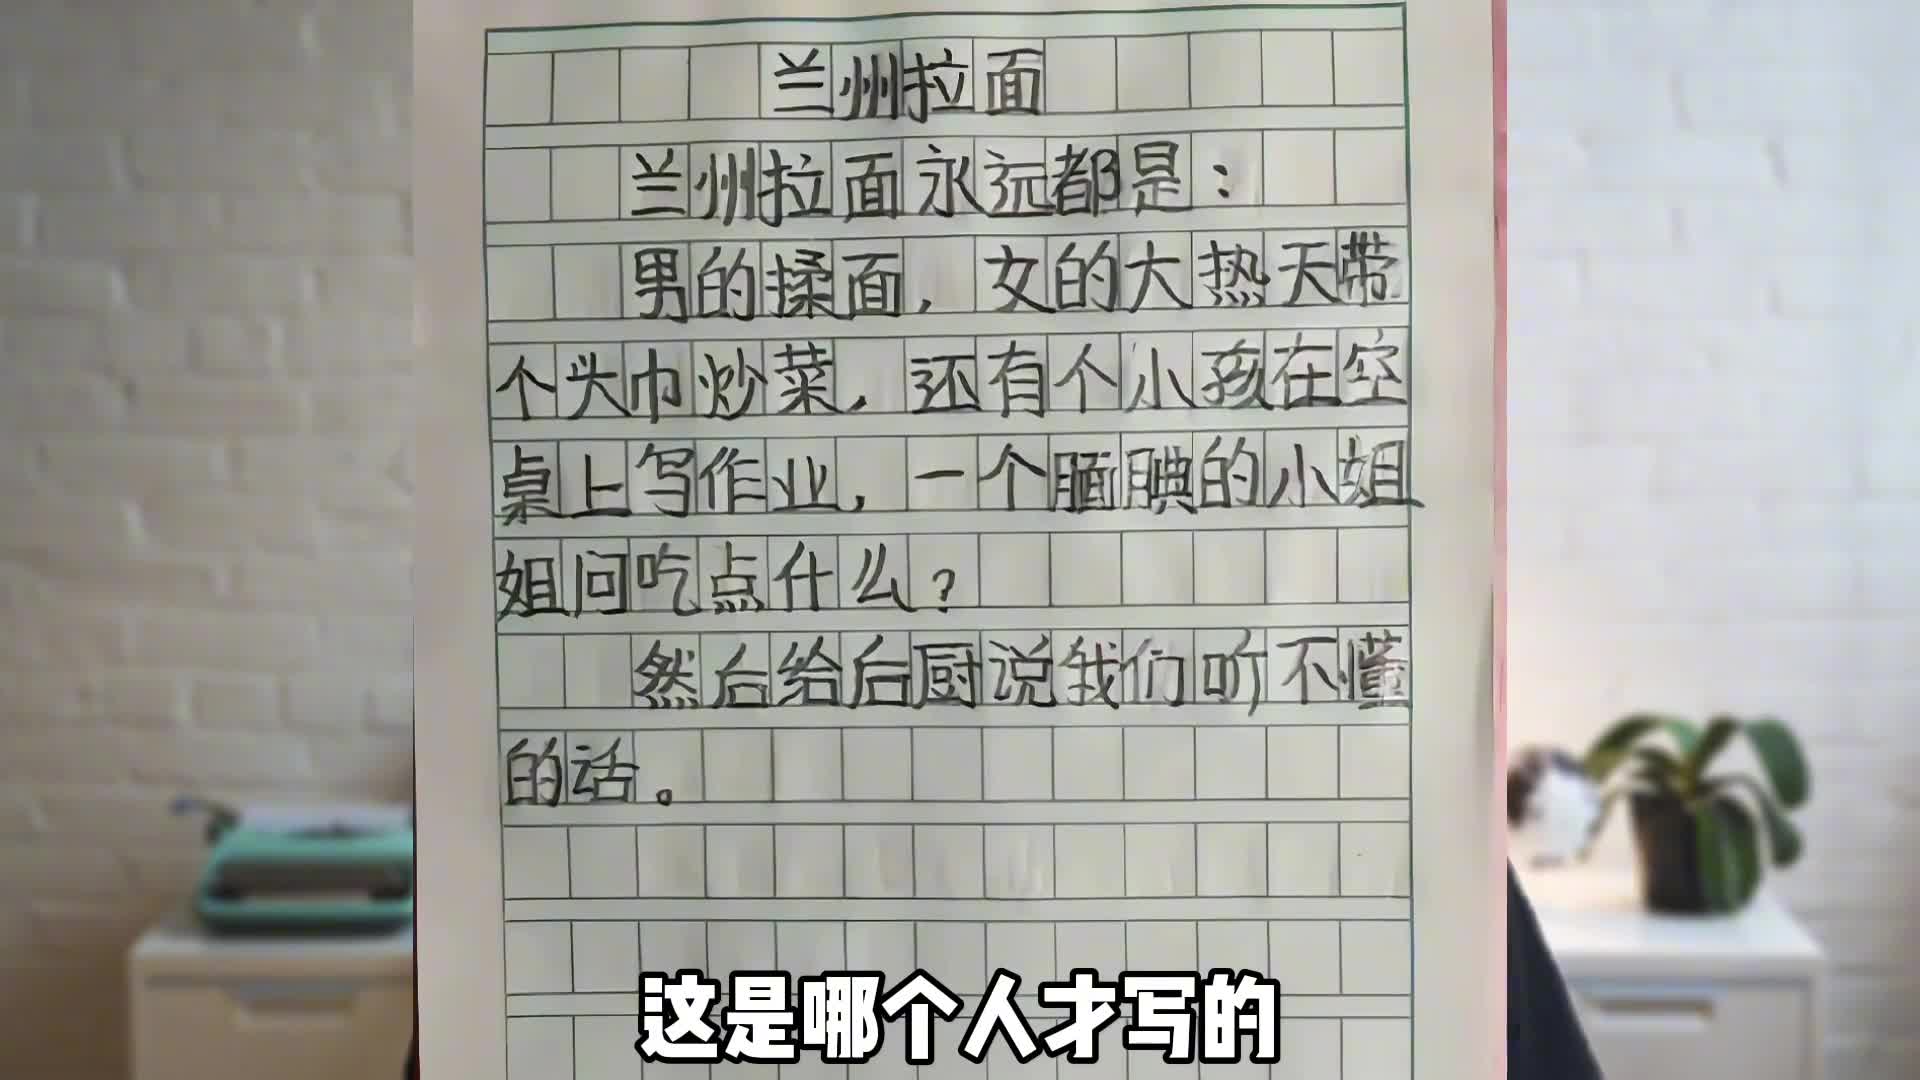 兰州拉面
兰州拉面永远都是：
男的揉面，女的大热天带
个头巾炒菜，还有个小孩在空
桌上写作业，一个腼腆的小姐
姐问吃点什么？
然后给后厨说我们听不懂
的话。
这是哪个人才写的